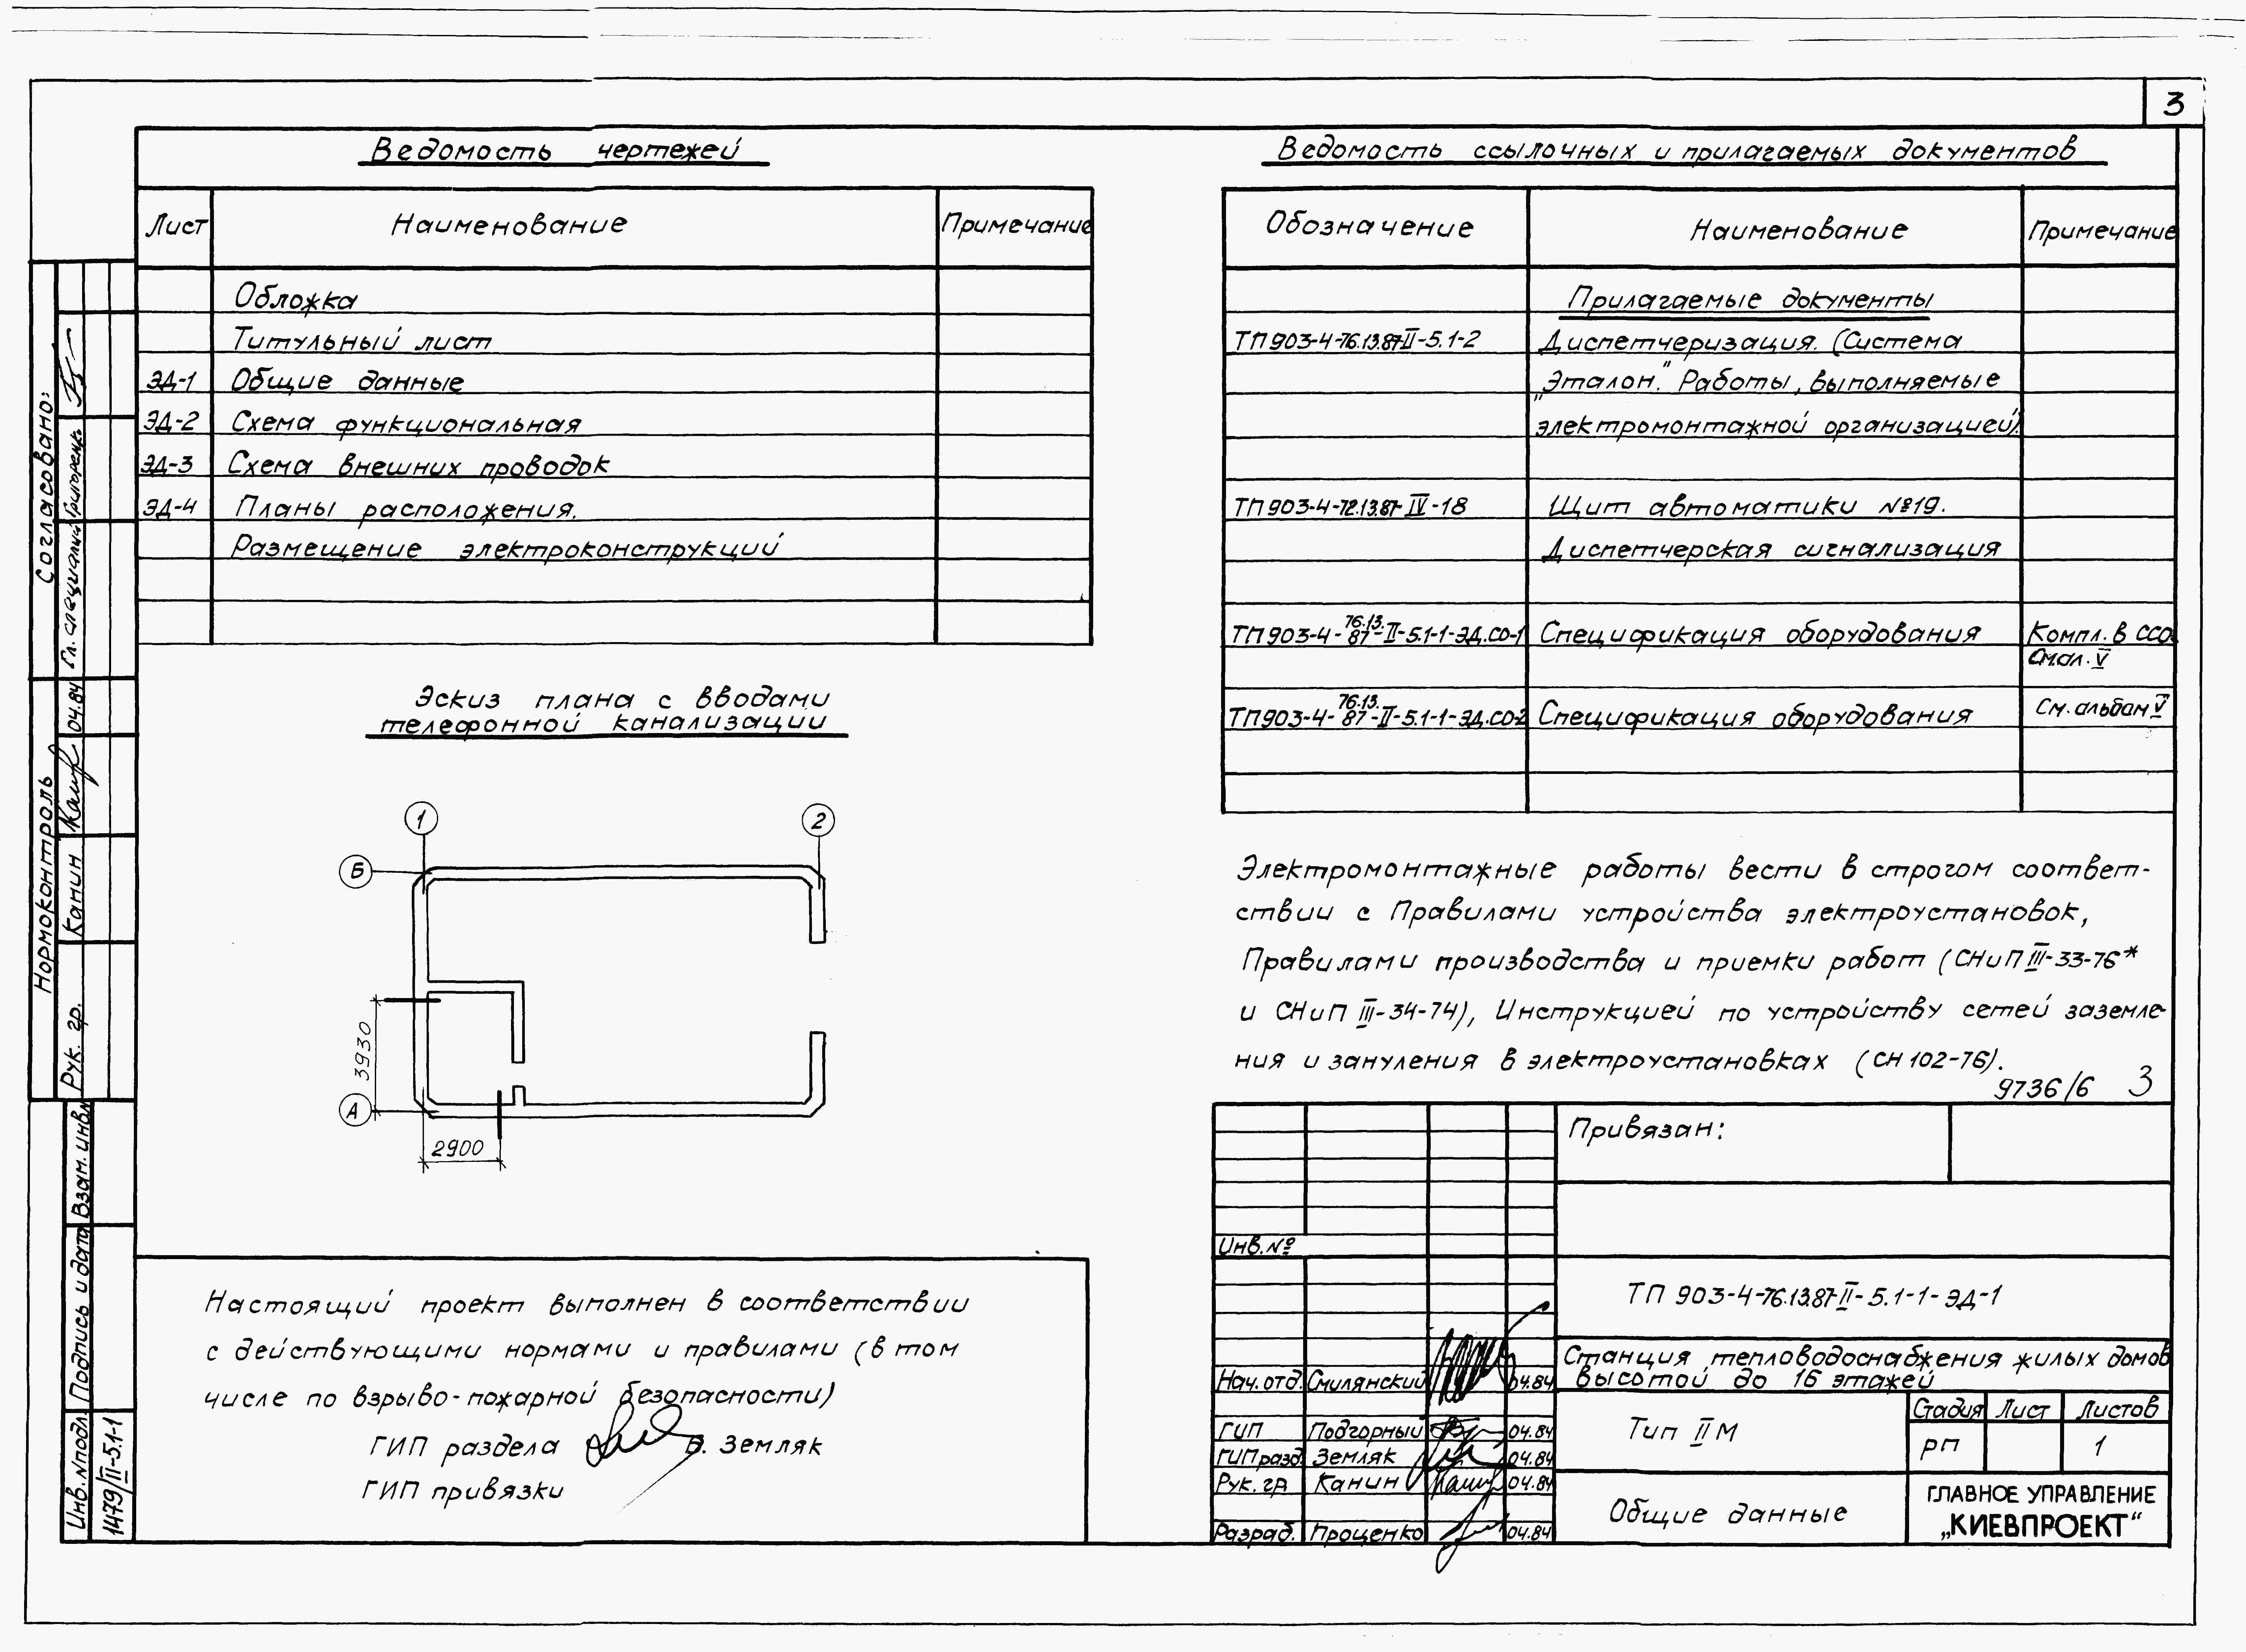 3
Ведомость чертежей
Лист Наименование Примечание
Обложка
Титульный лист
ЭД-1 Общие данные
ЭД-2 Схема функциональная
ЭД-3 Схема внешних проводок
ЭД-4 Планы расположения.
Размещение электроконструкций
Эскиз плана с вводами
телефонной канализации
1
2
Б
3930
А
2900
Настоящий проект выполнен в соответствии
с действующими нормами и правилами (в том
числе по взрыво-пожарной безопасности)
ГИП раздела В. Земляк
ГИП привязки
Ведомость ссылочных и прилагаемых документов
Обозначение Наименование Примечание
Прилагаемые документы
ТП 903-4-76.13.87-II-5.1-2 Диспетчеризация. (Система
„Эталон." Работы, выполняемые
электромонтажной организацией).
ТП 903-4-72.13.87-IV-18 Щит автоматики №19.
Диспетчерская сигнализация
ТП 903-4-76.13.87-II-5.1-1-ЭД.СО-1 Спецификация оборудования Компл. в ССО.
См.ал. V
ТП 903-4-76.13.87-II-5.1-1-ЭД.СО-2 Спецификация оборудования См. альбом V
Электромонтажные работы вести в строгом соответ-
ствии с Правилами устройства электроустановок,
Правилами производства и приемки работ (СНиП III-33-76*
и СНиП III-34-74), Инструкцией по устройству сетей заземле-
ния и зануления в электроустановках (СН 102-76).
9736/6 3
Привязан:
Инв.№
ТП 903-4-76.13.87-II-5.1-1-ЭД-1
Станция тепловодоснабжения жилых домов
высотой до 16 этажей
Нач.отд. Смилянский 04.84
ГИП Подгорный 04.84
ГИП разд. Земляк 04.84
Рук. гр. Канин 04.84
Разраб. Проценко 04.84
Тип II М
Стадия Лист Листов
РП 1
Общие данные
ГЛАВНОЕ УПРАВЛЕНИЕ
„КИЕВПРОЕКТ"
Согласовано:
Гл. специалист Григоренко
Нормоконтроль
Рук. гр. Канин 04.84
Взам. инв.№
Подпись и дата
Инв. № подл.
1479/II-5.1-1